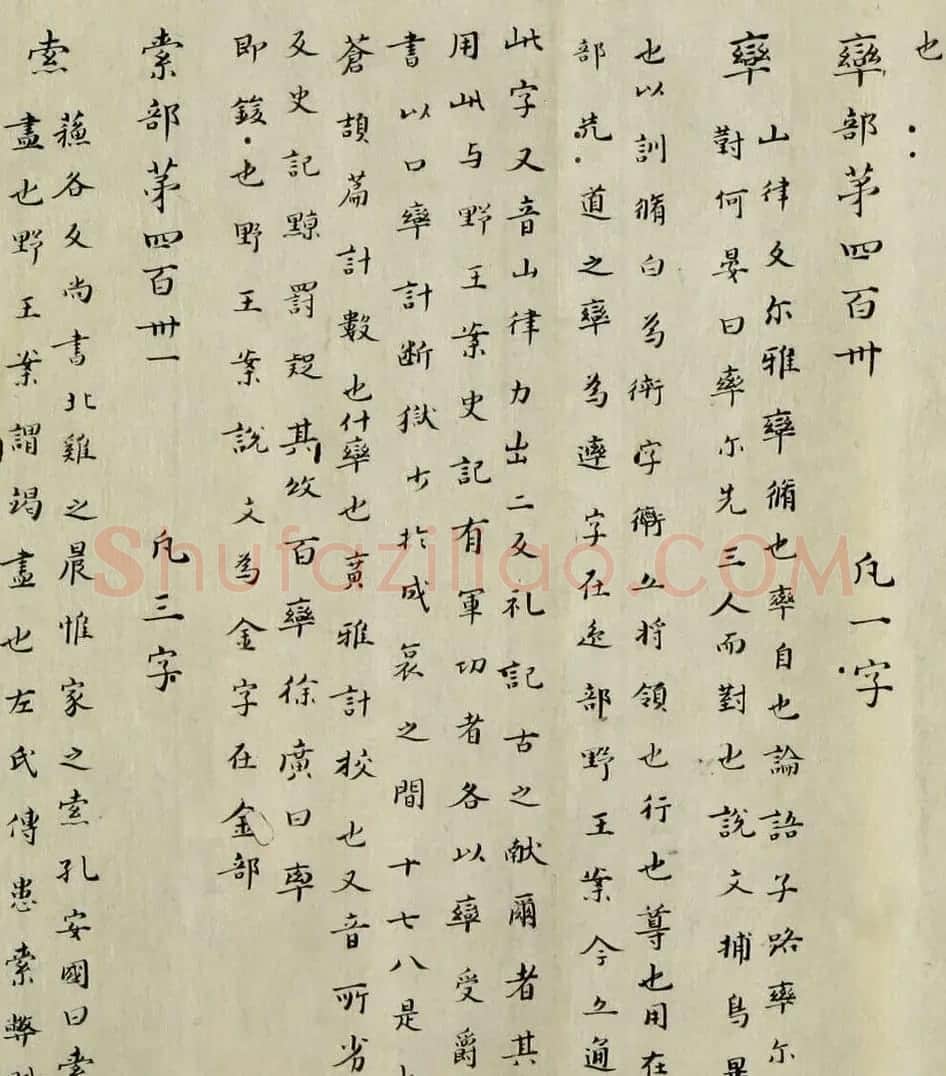 也
率部苐四百卅 凡一字
率 山律反尒雅率脩也率自也論語子路率尒
對何晏曰率尒先三人而對也說文捕鳥畢
也以訓脩自為䘖字䘖又将領也行也導也用在
部先道之率為䢦字在辵部野王案今亦通
此字又音山律力出二反礼記古之献爾者其
用此与野王案史記有軍功者各以率受爵
書以口率計断獄少扵成哀之間十七八是
蒼頡篇計數也什率也廣雅計挍也又音所劣
反史記黥罰疑其攽百率徐廣曰率
即鋑也野王案說文為金字在金部
索部苐四百卅一 凡三字
索 蘓各反尚書北雞之晨惟家之索孔安國曰索
盡也野王案謂竭盡也左氏傳悉索弊
Shufaziliao.COM